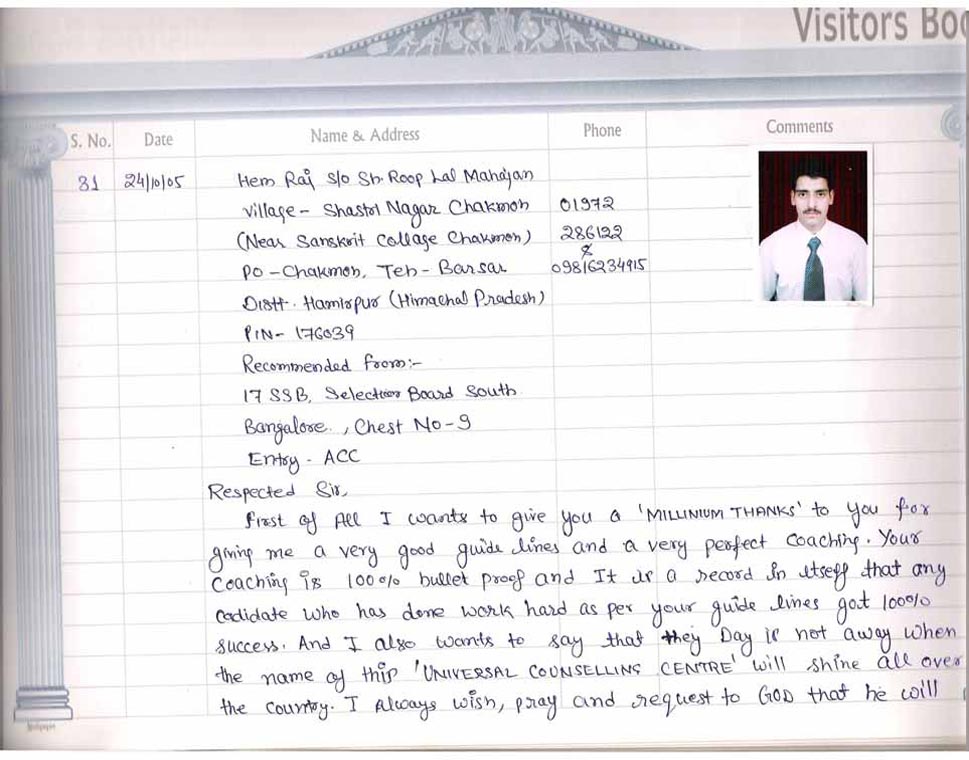 Visitors Boo
S. No. Date Name & Address Phone Comments
31 24/10/05 Hem Raj S/o Sh. Roop Lal Mahajan
Village - Shastri Nagar Chakmoh 01972
(Near Sanskrit Collage Chakmoh) 286122
&
PO - Chakmoh, Teh - Barsar 09816234915
Distt. Hamirpur (Himachal Pradesh)
PIN- 176039
Recommended from:-
17 SSB, Selection Board South
Bangalore., Chest No-9
Entry - ACC
Respected Sir,
First of All I wants to give you a 'MILLINIUM THANKS' to you for
giving me a very good guide lines and a very perfect coaching. Your
coaching is 100% bullet proof and It is a record in itself that any
cadidate who has done work hard as per your guide lines got 100%
success. And I also wants to say that they Day is not away when
the name of this 'UNIVERSAL COUNSELLING CENTRE' will shine all over
the country. I Always wish, pray and request to GOD that he will